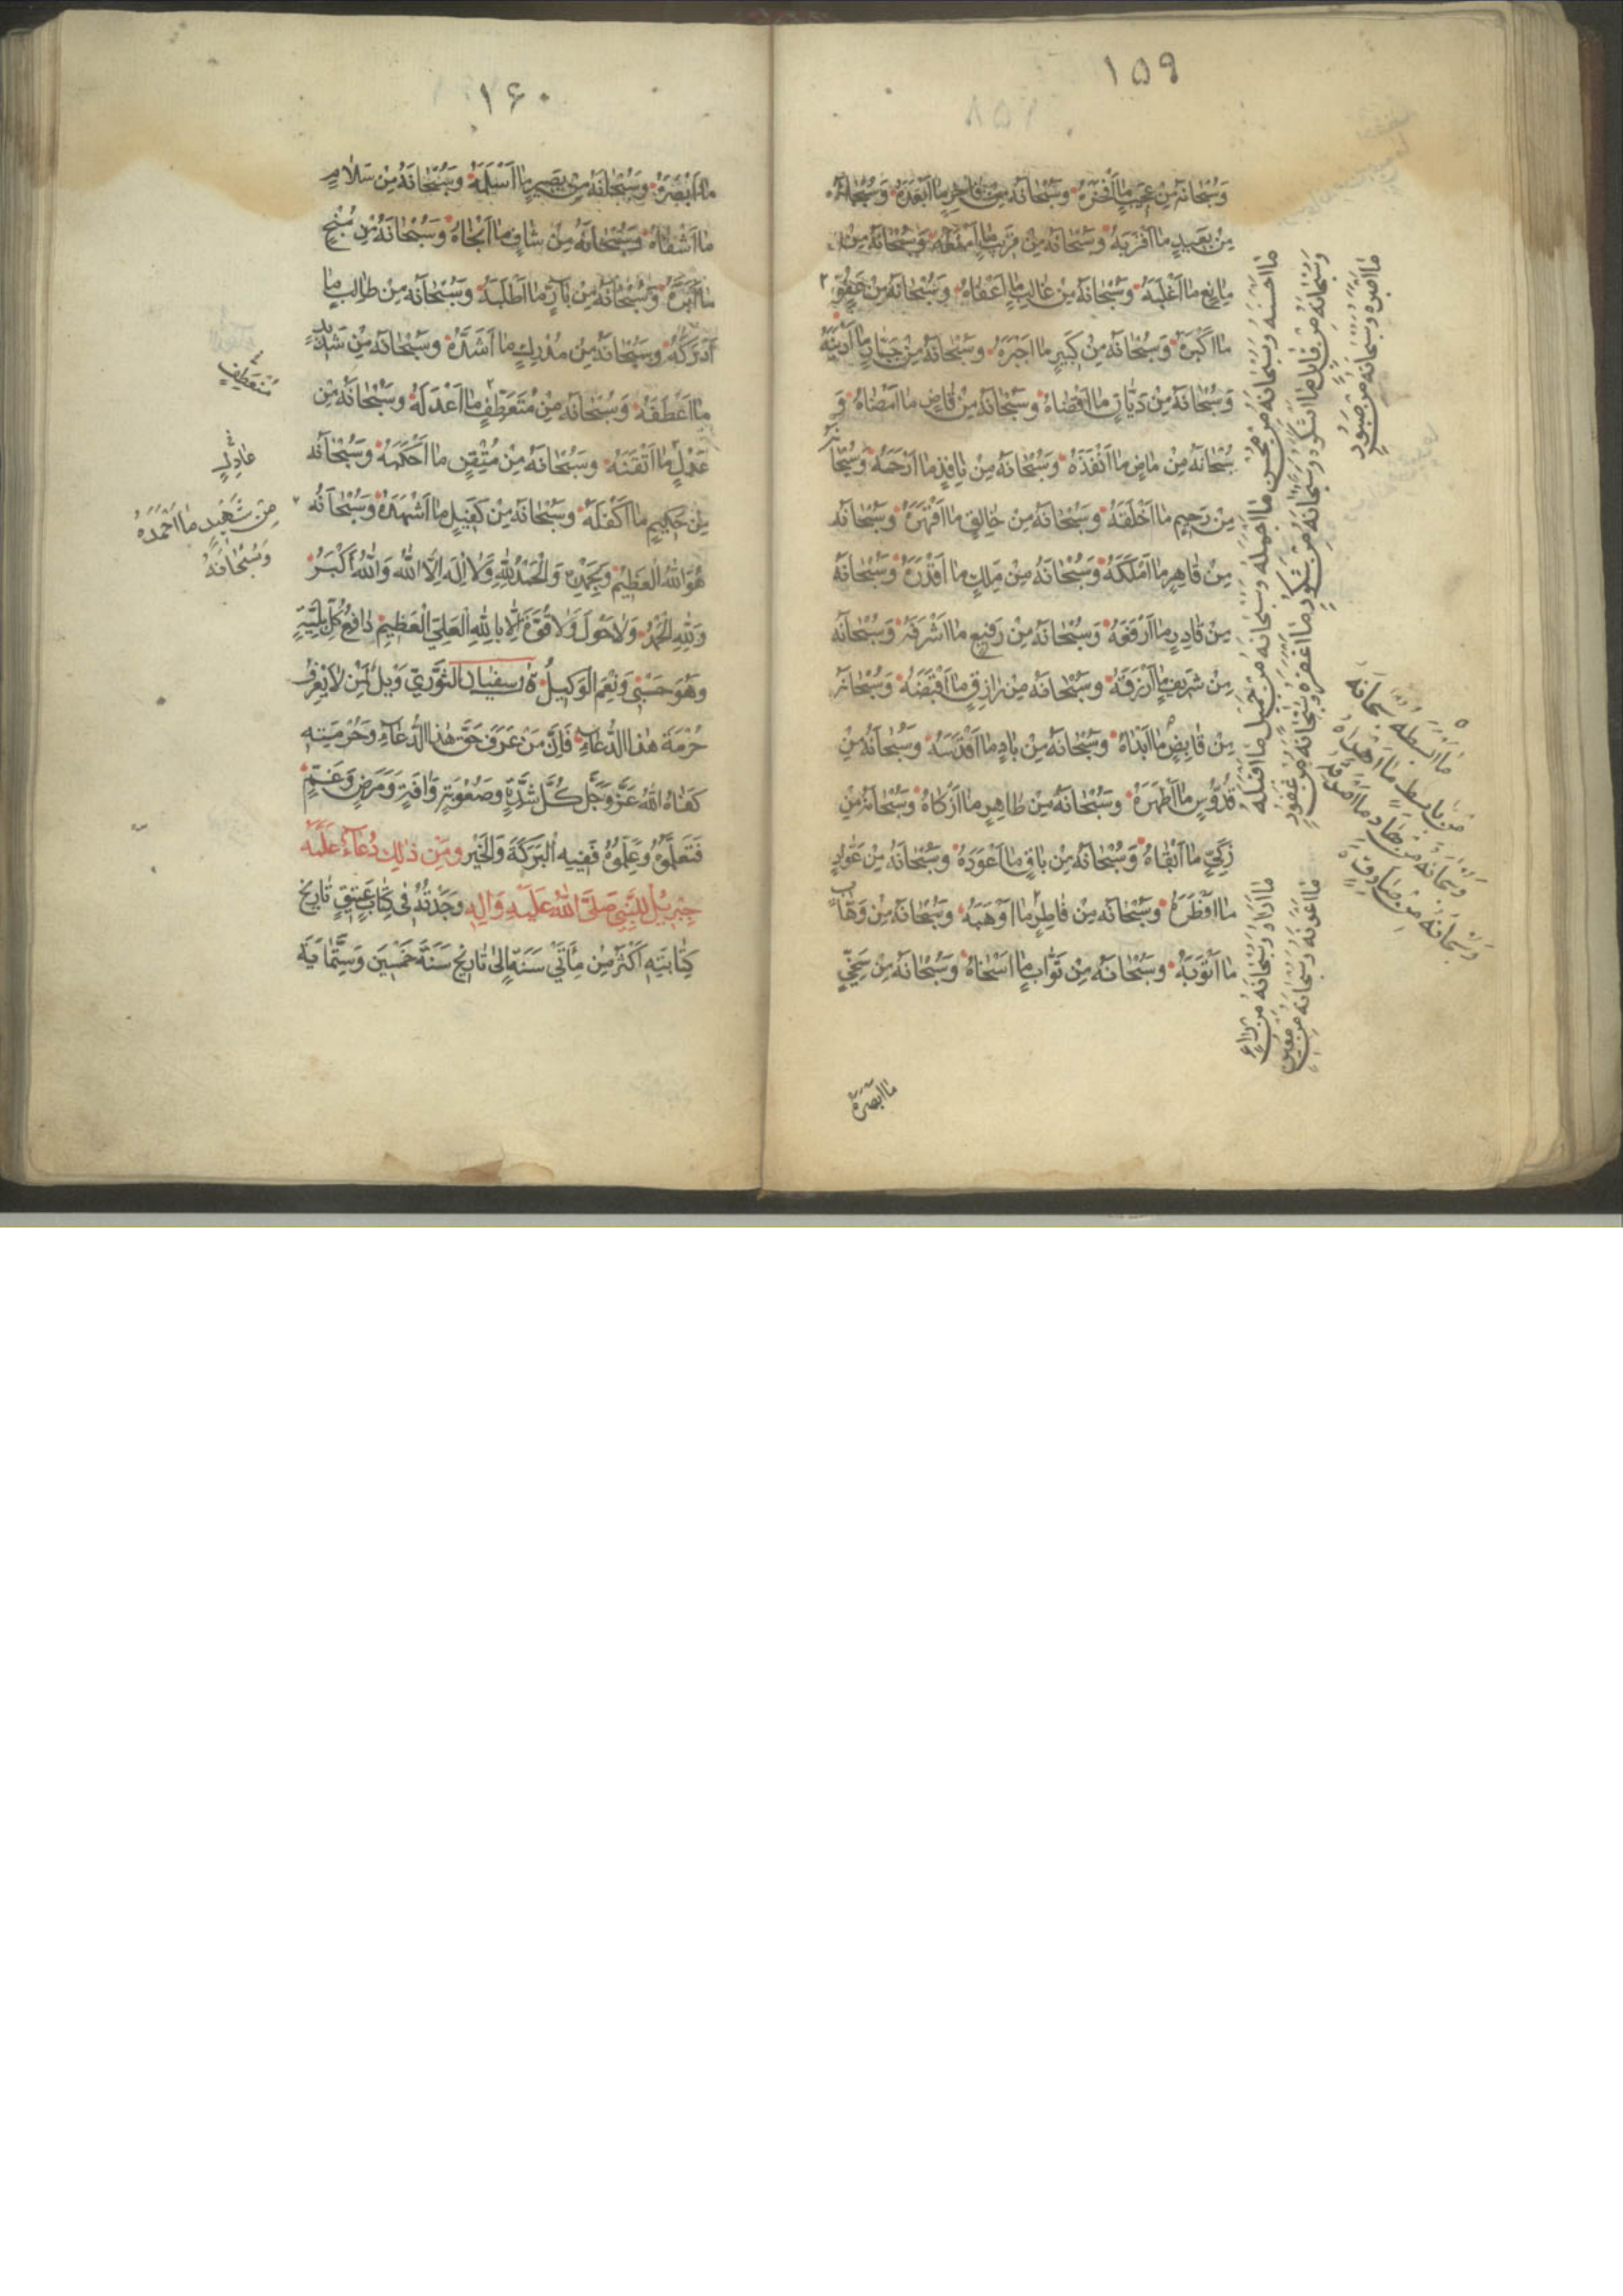 ١٥٩
وَسُبْحَانَهُ مِنْ عَجِيبٍ مَا اَفْخَرَهُ وَسُبْحَانَهُ مِنْ فَاخِرٍ مَا اَبْعَدَهُ وَسُبْحَانَهُ
مِنْ بَعِيدٍ مَا اَقْرَبَهُ وَسُبْحَانَهُ مِنْ قَرِيبٍ مَا اَمْنَعَهُ وَسُبْحَانَهُ مِنْ
مَانِعٍ مَا اَغْلَبَهُ وَسُبْحَانَهُ مِنْ غَالِبٍ مَا اَعْفَاهُ وَسُبْحَانَهُ مِنْ عَفُوٍّ
مَا اَكْبَرَهُ وَسُبْحَانَهُ مِنْ كَبِيرٍ مَا اَجْبَرَهُ وَسُبْحَانَهُ مِنْ جَبَّارٍ مَا اَدْيَنَهُ
وَسُبْحَانَهُ مِنْ دَيَّانٍ مَا اَقْضَاهُ وَسُبْحَانَهُ مِنْ قَاضٍ مَا اَمْضَاهُ وَ
سُبْحَانَهُ مِنْ مَاضٍ مَا اَنْفَذَهُ وَسُبْحَانَهُ مِنْ نَافِذٍ مَا اَرْحَمَهُ وَسُبْحَانَهُ
مِنْ رَحِيمٍ مَا اَخْلَقَهُ وَسُبْحَانَهُ مِنْ خَالِقٍ مَا اَقْهَرَهُ وَسُبْحَانَهُ
مِنْ قَاهِرٍ مَا اَمْلَكَهُ وَسُبْحَانَهُ مِنْ مَلِكٍ مَا اَقْدَرَهُ وَسُبْحَانَهُ
مِنْ قَادِرٍ مَا اَرْفَعَهُ وَسُبْحَانَهُ مِنْ رَفِيعٍ مَا اَشْرَفَهُ وَسُبْحَانَهُ
مِنْ شَرِيفٍ مَا اَرْزَقَهُ وَسُبْحَانَهُ مِنْ رَازِقٍ مَا اَقْبَضَهُ وَسُبْحَانَهُ
مِنْ قَابِضٍ مَا اَبْدَاهُ وَسُبْحَانَهُ مِنْ بَادٍ مَا اَقْدَسَهُ وَسُبْحَانَهُ مِنْ
قُدُّوسٍ مَا اَطْهَرَهُ وَسُبْحَانَهُ مِنْ طَاهِرٍ مَا اَزْكَاهُ وَسُبْحَانَهُ مِنْ
زَكِيٍّ مَا اَبْقَاهُ وَسُبْحَانَهُ مِنْ بَاقٍ مَا اَعْوَدَهُ وَسُبْحَانَهُ مِنْ عَوَّادٍ
مَا اَفْطَرَهُ وَسُبْحَانَهُ مِنْ فَاطِرٍ مَا اَوْهَبَهُ وَسُبْحَانَهُ مِنْ وَهَّابٍ
مَا اَتْوَبَهُ وَسُبْحَانَهُ مِنْ تَوَّابٍ مَا اَسْخَاهُ وَسُبْحَانَهُ مِنْ سَخِيٍّ
مَا اَبْصَرَهُ
مَا اَحْسَنَهُ وَسُبْحَانَهُ مِنْ مُحْسِنٍ مَا اَجْمَلَهُ وَسُبْحَانَهُ مِنْ جَمِيلٍ مَا اَقْبَلَهُ
وَسُبْحَانَهُ مِنْ قَابِلٍ مَا اَشْكَرَهُ وَسُبْحَانَهُ مِنْ شَكُورٍ مَا اَغْفَرَهُ وَسُبْحَانَهُ مِنْ غَفُورٍ
مَا اَصْبَرَهُ وَسُبْحَانَهُ مِنْ صَبُورٍ
مَا اَبْسَطَهُ سُبْحَانَهُ
مِنْ بَاسِطٍ مَا اَهْدَاهُ
وَسُبْحَانَهُ مِنْ هَادٍ مَا اَصْدَقَهُ
وَسُبْحَانَهُ مِنْ صَادِقٍ
١٦٠
مَا اَبْصَرَهُ وَسُبْحَانَهُ مِنْ بَصِيرٍ مَا اَسْلَمَهُ وَسُبْحَانَهُ مِنْ سَلَامٍ
مَا اَشْفَاهُ وَسُبْحَانَهُ مِنْ شَافٍ مَا اَنْجَاهُ وَسُبْحَانَهُ مِنْ مُنْجٍ
مَا اَبَرَّهُ وَسُبْحَانَهُ مِنْ بَارٍّ مَا اَطْلَبَهُ وَسُبْحَانَهُ مِنْ طَالِبٍ مَا
اَدْرَكَهُ وَسُبْحَانَهُ مِنْ مُدْرِكٍ مَا اَشَدَّهُ وَسُبْحَانَهُ مِنْ شَدِيدٍ
مَا اَعْطَفَهُ وَسُبْحَانَهُ مِنْ مُتَعَطِّفٍ مَا اَعْدَلَهُ وَسُبْحَانَهُ مِنْ
عَدْلٍ مَا اَتْقَنَهُ وَسُبْحَانَهُ مِنْ مُتْقِنٍ مَا اَحْكَمَهُ وَسُبْحَانَهُ
مِنْ حَكِيمٍ مَا اَكْفَلَهُ وَسُبْحَانَهُ مِنْ كَفِيلٍ مَا اَشْهَدَهُ وَسُبْحَانَهُ
هُوَ اللّٰهُ الْعَظِيمُ وَبِحَمْدِهِ وَالْحَمْدُ لِلّٰهِ وَلَا اِلٰهَ اِلَّا اللّٰهُ وَاللّٰهُ اَكْبَرُ
وَلِلّٰهِ الْحَمْدُ وَلَا حَوْلَ وَلَا قُوَّةَ اِلَّا بِاللّٰهِ الْعَلِيِّ الْعَظِيمِ دَافِعِ كُلِّ بَلِيَّةٍ
وَهُوَ حَسْبِي وَنِعْمَ الْوَكِيلُ قَالَ سفيان الثَّوْرِيّ وَيْلٌ لِمَنْ لَا يَعْرِفُ
حُرْمَةَ هٰذَا الدُّعَاءِ فَاِنَّ مَنْ عَرَفَ حَقَّ هٰذَا الدُّعَاءِ وَحُرْمَتِهِ
كَفَاهُ اللّٰهُ عَزَّ وَجَلَّ كُلَّ شِدَّةٍ وَصُعُوبَةٍ وَآفَةٍ وَمَرَضٍ وَغَمٍّ
فَتَعَلَّمُوهُ وَعَلِّمُوهُ فَفِيهِ الْبَرَكَةُ وَالْخَيْرُ وَمِنْ ذٰلِكَ دُعَاءٌ عَلَّمَهُ
جِبْرِيلُ لِلنَّبِيِّ صَلَّى اللّٰهُ عَلَيْهِ وَالِهِ وَجَدْتُهُ فِي كِتَابٍ عَتِيقٍ تَارِيخُ
كِتَابَتِهِ اَكْثَرُ مِنْ مِأَتَيْ سَنَةٍ اِلَى تَارِيخِ سَنَةَ خَمْسِينَ وَسِتَّمِايَة
مُنْعَطِفٍ
عَادِلٍ
مِنْ شَهِيدٍ مَا اَحْمَدَهُ
وَسُبْحَانَهُ